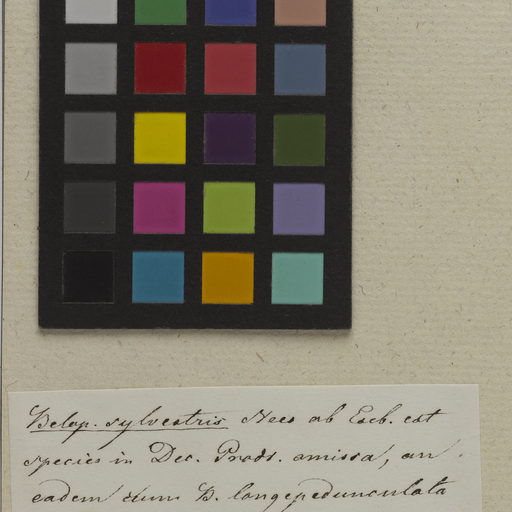 Belop. sylvestris Nees ab Eseb. est
species in Dec. Prodr. omissa, an
eadem cum B. longepedunculata